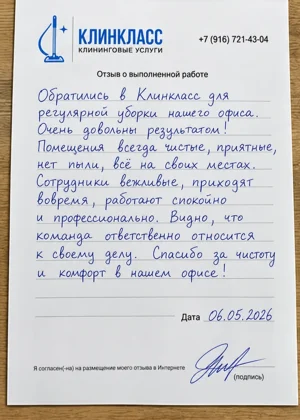 КЛИНКЛАСС
КЛИНИНГОВЫЕ УСЛУГИ
+7 (916) 721-43-04
Отзыв о выполненной работе
Обратились в Клинкласс для
регулярной уборки нашего офиса.
Очень довольны результатом!
Помещения всегда чистые, приятные,
нет пыли, всё на своих местах.
Сотрудники вежливые, приходят
вовремя, работают спокойно
и профессионально. Видно, что
команда ответственно относится
к своему делу. Спасибо за чистоту
и комфорт в нашем офисе!
Дата 06.05.2026
Я согласен(-на) на размещение моего отзыва в Интернете
(подпись)